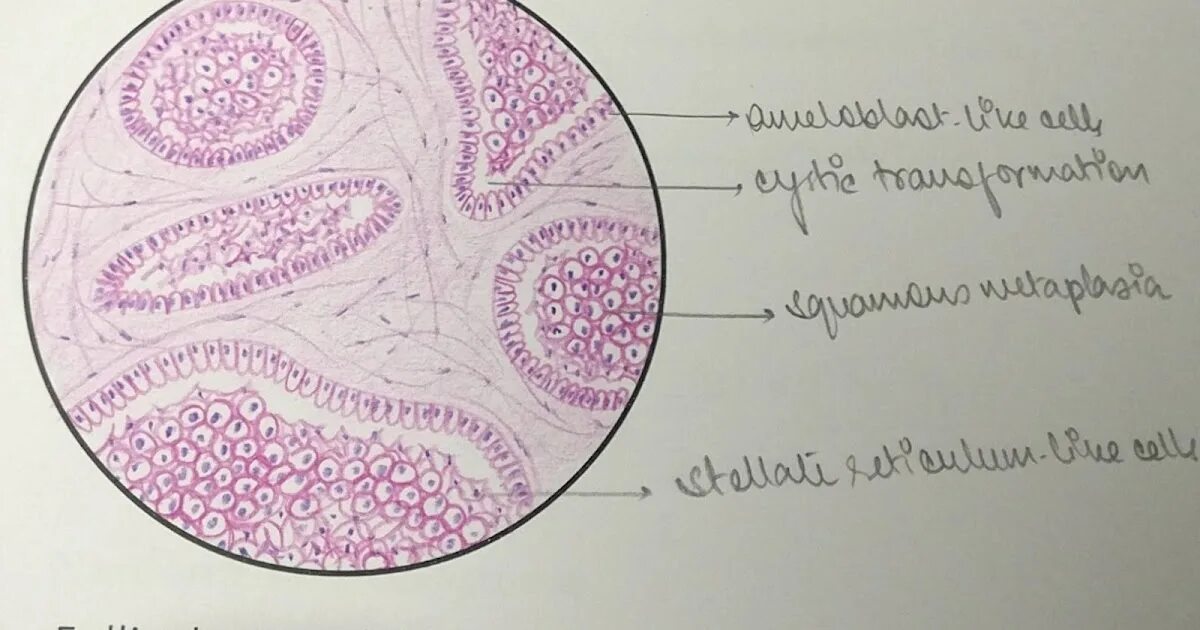 ameloblast-like cells
cystic transformation
squamous metaplasia
stellate reticulum-like cells